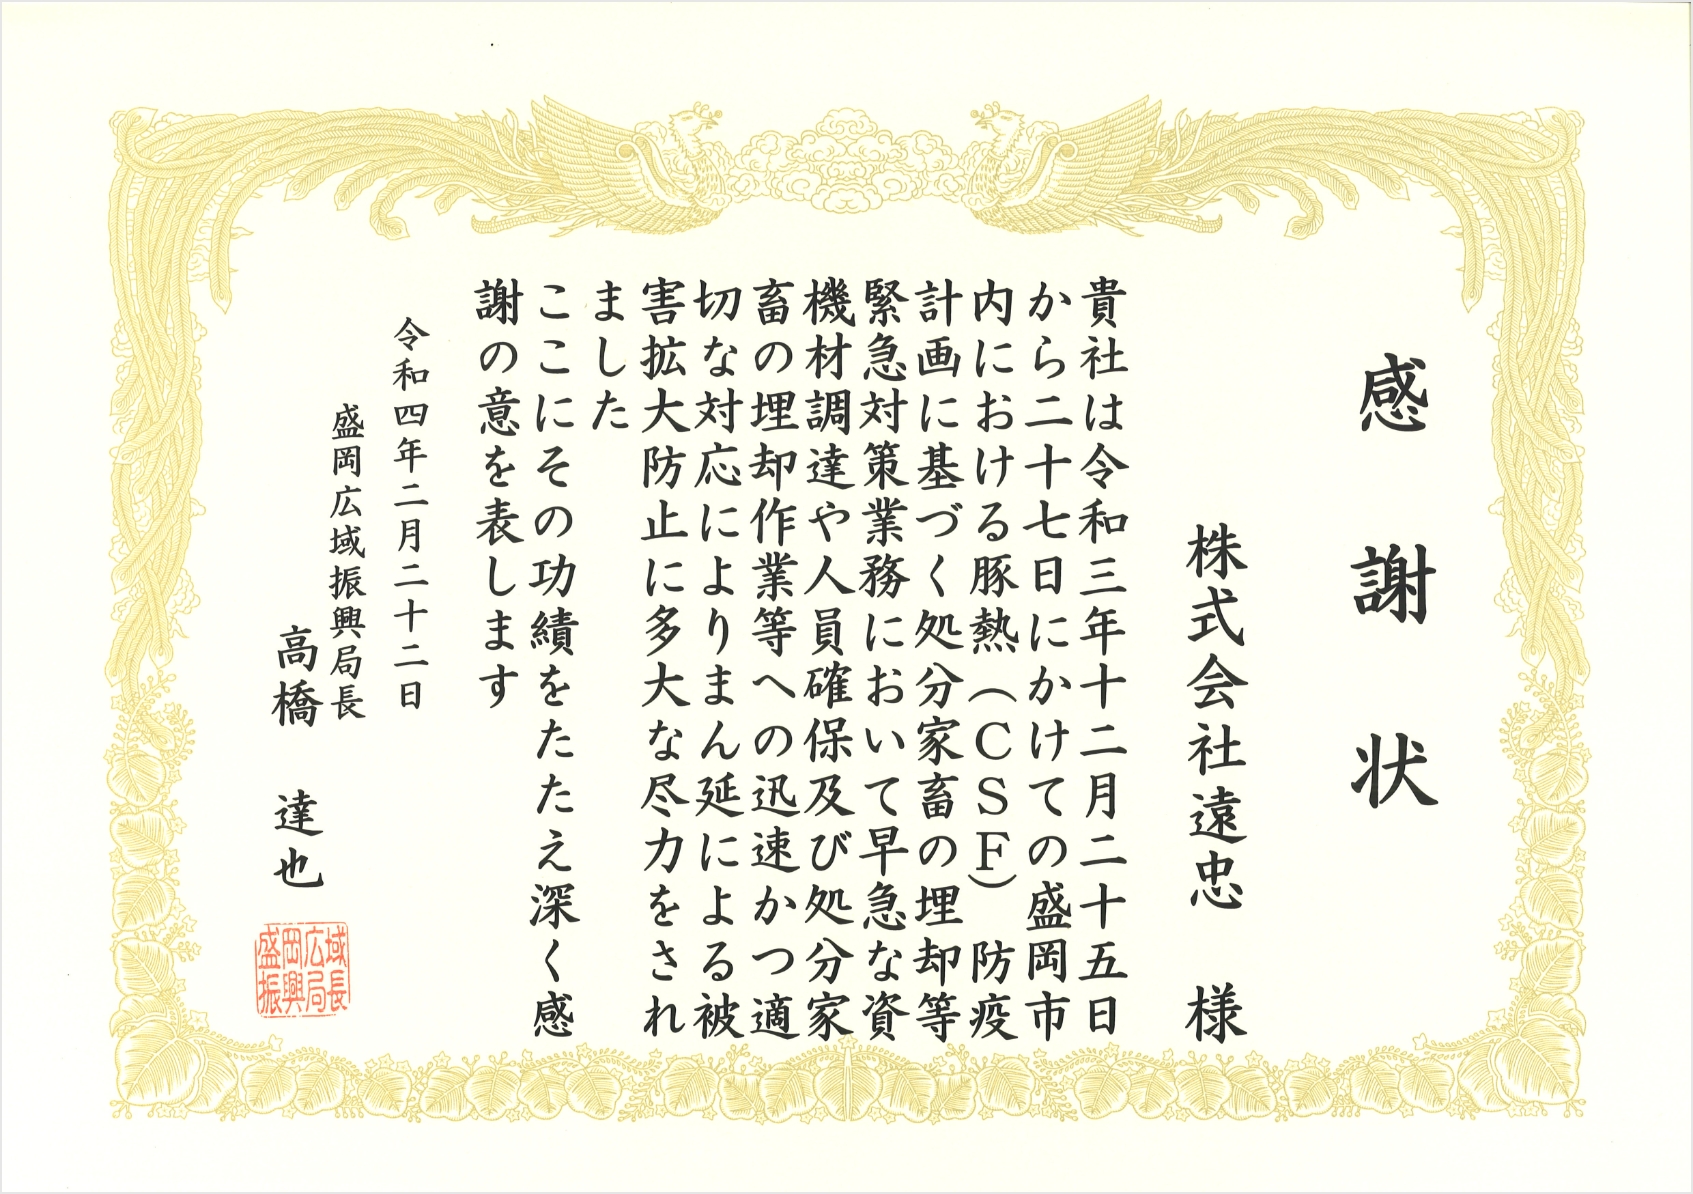 感謝状
株式会社遠忠　様
貴社は令和三年十二月二十五日
から二十七日にかけての盛岡市
内における豚熱（ＣＳＦ）防疫
計画に基づく処分家畜の埋却等
緊急対策業務において早急な資
機材調達や人員確保及び処分家
畜の埋却作業等への迅速かつ適
切な対応によりまん延による被
害拡大防止に多大な尽力をされ
ました
ここにその功績をたたえ深く感
謝の意を表します
令和四年二月二十二日
盛岡広域振興局長
高橋　達也
盛岡広域
振興局長